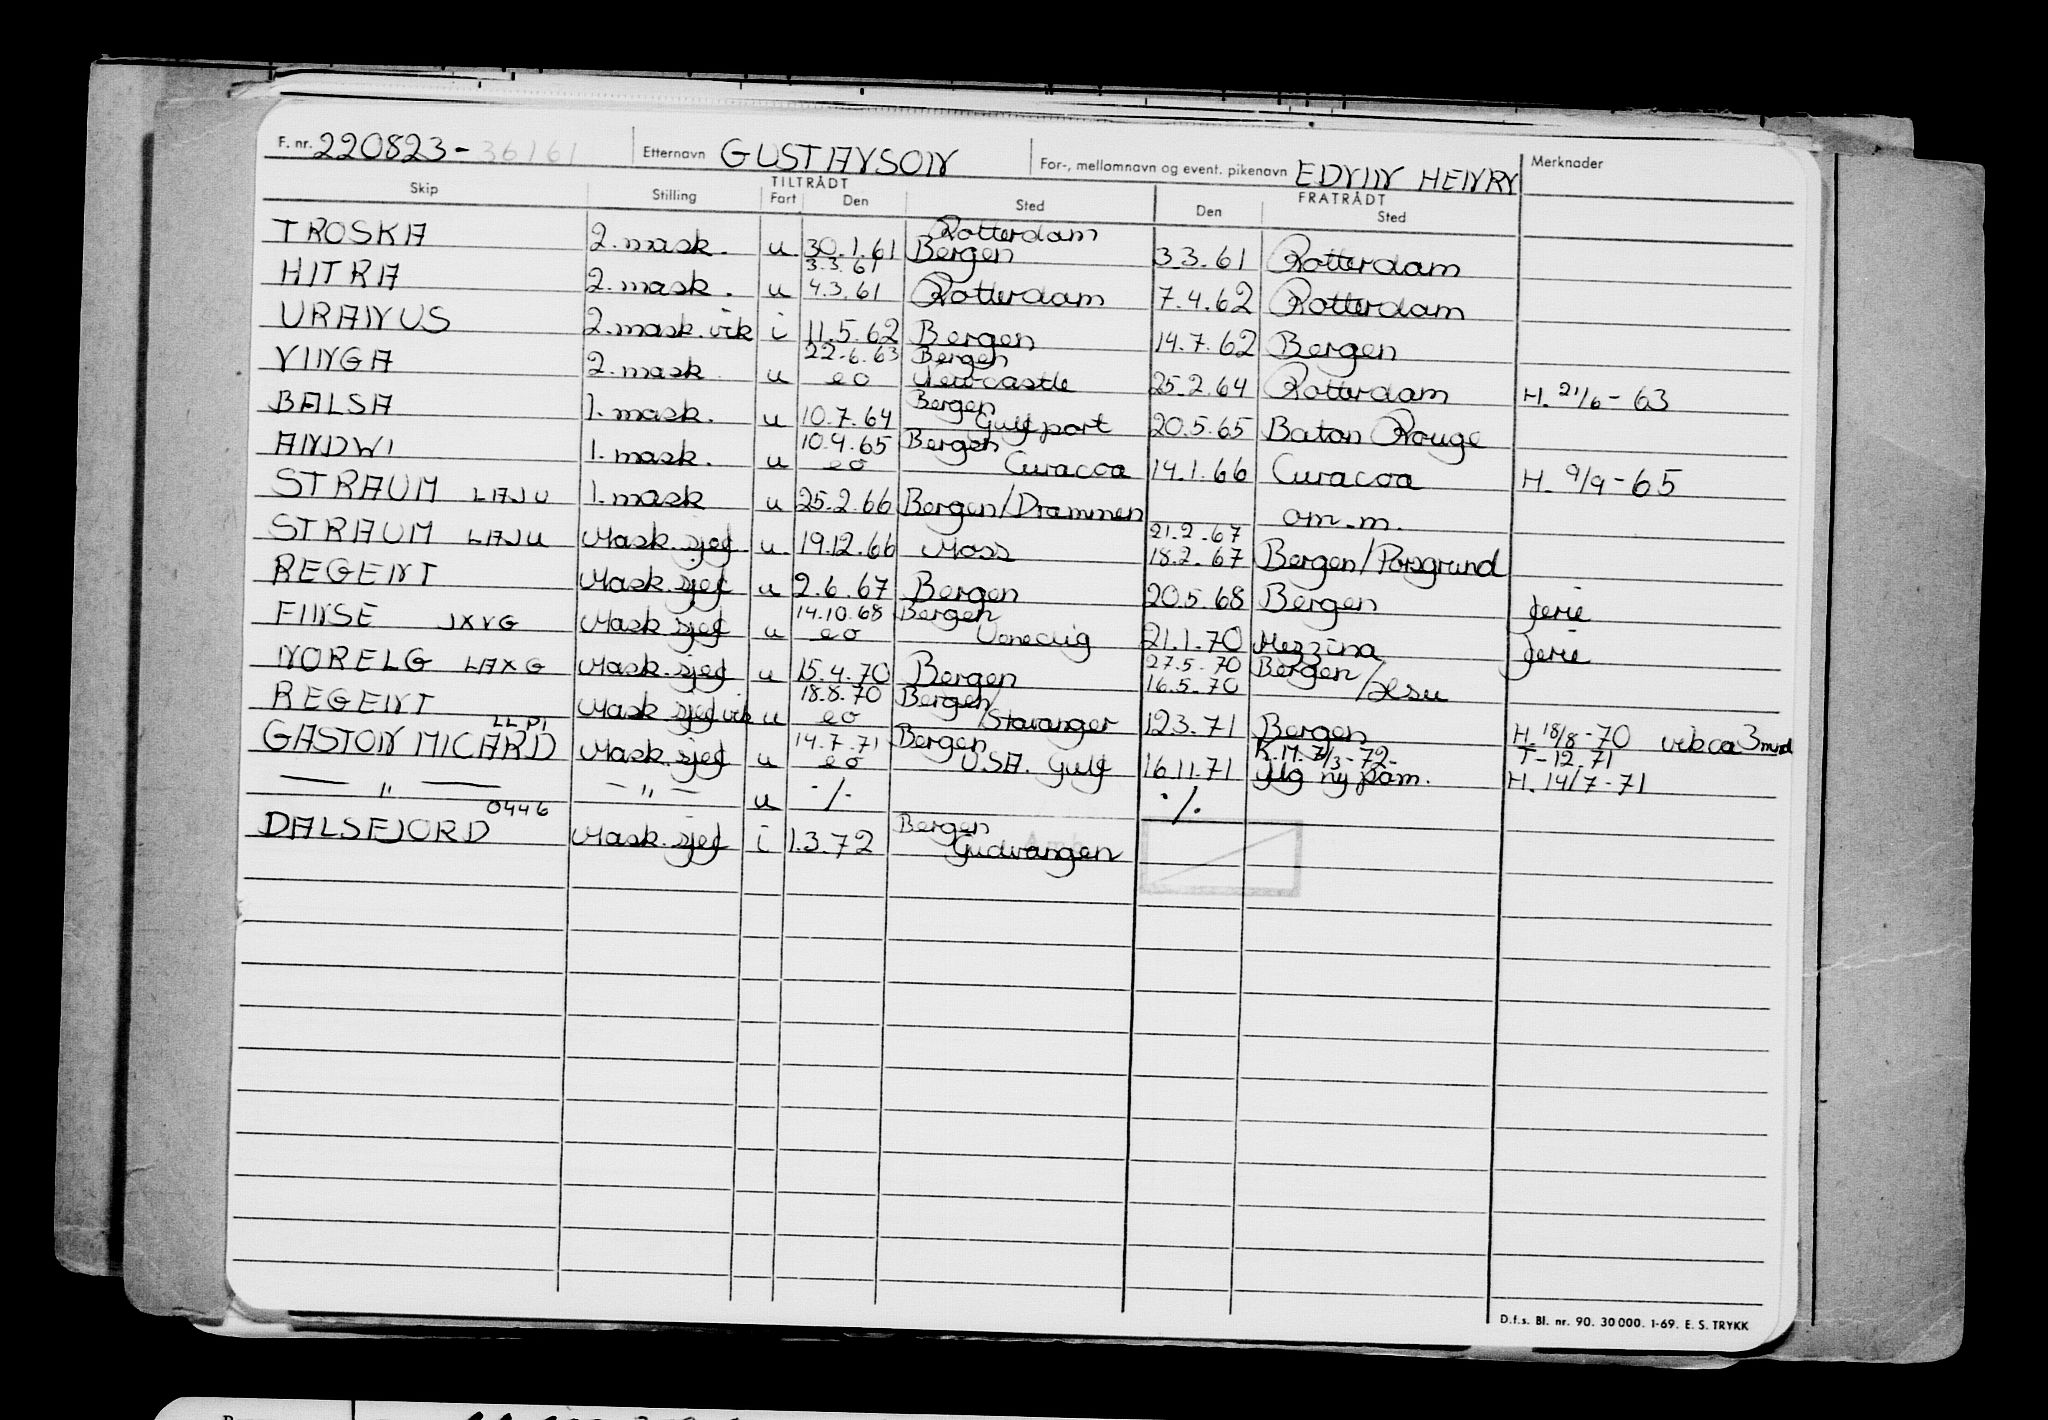 F. nr. 220823-36161 Etternavn GUSTAVSON For-, mellomnavn og event. pikenavn EDVIN HENRY Merknader
TILTRÅDT FRATRÅDT
Skip Stilling Fart Den Sted Den Sted
TROSKA 2. mask. u 30.1.61 Rotterdam Bergen 3.3.61 Rotterdam
HITRA 2. mask. u 3.3.61 4.3.61 Rotterdam 7.4.62 Rotterdam
URANUS 2. mask. vik i 11.5.62 Bergen 14.7.62 Bergen
VINGA 2. mask u 22.6.63 eo Bergen Newcastle 25.2.64 Rotterdam H. 21/6-63
BALSA 1. mask. u 10.7.64 Bergen Gulfport 20.5.65 Baton Rouge
ANDWI 1. mask. u 10.9.65 eo Bergen Curacoa 14.1.66 Curacoa H. 9/9-65
STRAUM LAJU 1. mask u 25.2.66 Bergen/Drammen om.m.
STRAUM LAJU Mask.sjef u 19.12.66 Moss 21.2.67 18.2.67 Bergen/Porsgrund
REGENT Mask.sjef u 2.6.67 Bergen 20.5.68 Bergen ferie
FINSE JXVG Mask.sjef u 14.10.68 eo Bergen Venedig 21.1.70 Mezzina ferie
NORELG LAXG Mask.sjef u 15.4.70 Bergen 27.5.70 16.5.70 Bergen/
REGENT Mask.sjef vik u 18.8.70 eo Bergen/Stavanger 12.3.71 Bergen H. 18/8-70 vik ca 3 mnd
GASTON MICARD LLPI Mask.sjef u 14.7.71 eo Bergen USA. Gulf 16.11.71 K.M. 7/3-72- ny påm. T-12.71 H. 14/7-71
— " — — " — u ·/. ·/.
DALSFJORD 0446 Mask.sjef i 1.3.72 Bergen Gudvangen
D.f.s. Bl. nr. 90. 30 000. 1-69. E. S. TRYKK